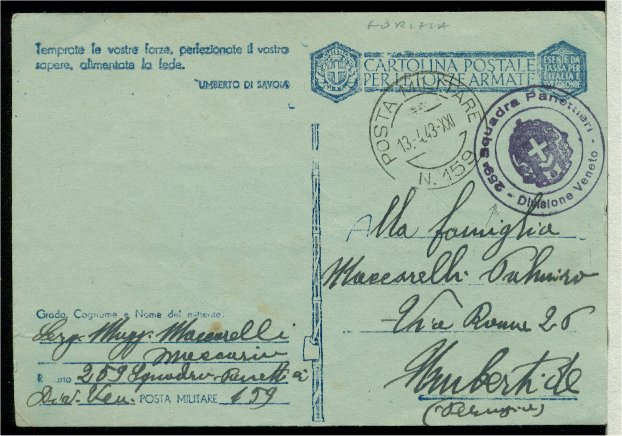 GORIZIA
Temprate le vostre forze, perfezionate il vostro
sapere, alimentate la fede.
UMBERTO DI SAVOIA
CARTOLINA POSTALE
PER LE FORZE ARMATE
ESENTE DA
TASSA PER
L'ITALIA E
POSTA MILITARE
13.4.43-XXI
N. 159
259ª Squadra Panettieri
- Divisione Veneto -
Alla famiglia
Maccarelli Palmiro
Via Roma 26
Umbertide
(Perugia)
Grado, Cognome e Nome del mittente
Serg. Magg. Maccarelli
259 Squadra
Div. Ven. POSTA MILITARE 159